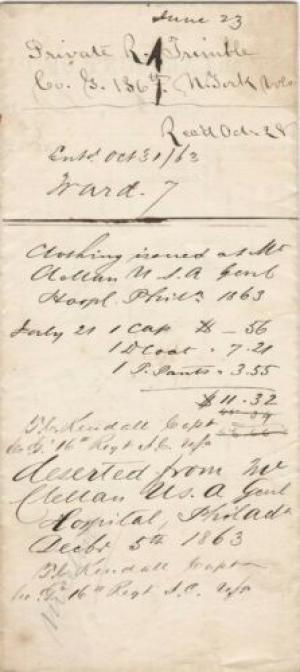 June 23
Private R. Trimble
Co. G. 186th N York Vols
Rec'd Oct. 28
Ent'd Oct 31/63
Ward. 7
Clothing issued at Mc
Clellan U S. A Genl
Hospl. Phila. 1863
July 21 1 Cap $ - 56
1 D Coat - 7.21
1 P. Pants - 3.55
$ 11.32
Kendall Capt
Co. G. 16th Regt
deserted from Mc
Clellan U s. a Genl
Hospital, Philada
Decbr 5th 1863
Kendall Capt
Co. G. 16th Regt